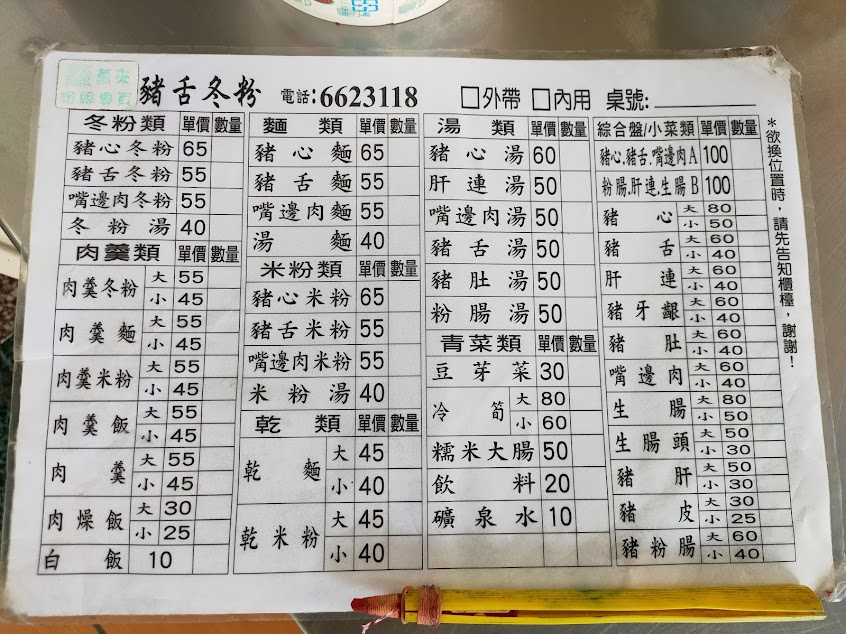 豬舌冬粉 電話:6623118 □外帶 □內用 桌號:
冬粉類 單價 數量
豬心冬粉 65
豬舌冬粉 55
嘴邊肉冬粉 55
冬粉湯 40
肉羹類 單價 數量
肉羹冬粉 大 55
小 45
肉羹麵 大 55
小 45
肉羹米粉 大 55
小 45
肉羹飯 大 55
小 45
肉羹 大 55
小 45
肉燥飯 大 30
小 25
白飯 10
麵類 單價 數量
豬心麵 65
豬舌麵 55
嘴邊肉麵 55
湯麵 40
米粉類 單價 數量
豬心米粉 65
豬舌米粉 55
嘴邊肉米粉 55
米粉湯 40
乾類 單價 數量
乾麵 大 45
小 40
乾米粉 大 45
小 40
湯類 單價 數量
豬心湯 60
肝連湯 50
嘴邊肉湯 50
豬舌湯 50
豬肚湯 50
粉腸湯 50
青菜類 單價 數量
豆芽菜 30
冷筍 大 80
小 60
糯米大腸 50
飲料 20
礦泉水 10
綜合盤/小菜類 單價 數量
豬心.豬舌.嘴邊肉A 100
粉腸.肝連.生腸B 100
豬心 大 80
小 50
豬舌 大 60
小 40
肝連 大 60
小 40
豬牙齦 大 60
小 40
豬肚 大 60
小 40
嘴邊肉 大 60
小 40
生腸 大 80
小 50
生腸頭 大 50
小 30
豬肝 大 50
小 30
豬皮 大 30
小 25
豬粉腸 大 60
小 40
*欲換位置時，請先告知櫃檯，謝謝！